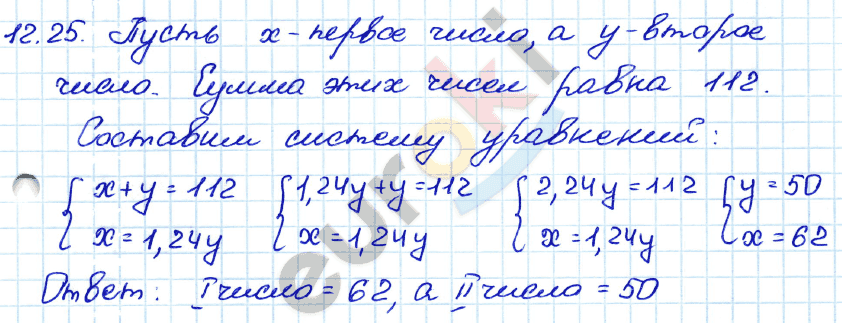 12.25. Пусть x - первое число, а y - второе
число. Сумма этих чисел равна 112.
Составим систему уравнений:
{ x+y=112 { 1,24y+y=112 { 2,24y=112 { y=50
x=1,24y x=1,24y x=1,24y x=62
Ответ: I число = 62, а II число = 50
euroki